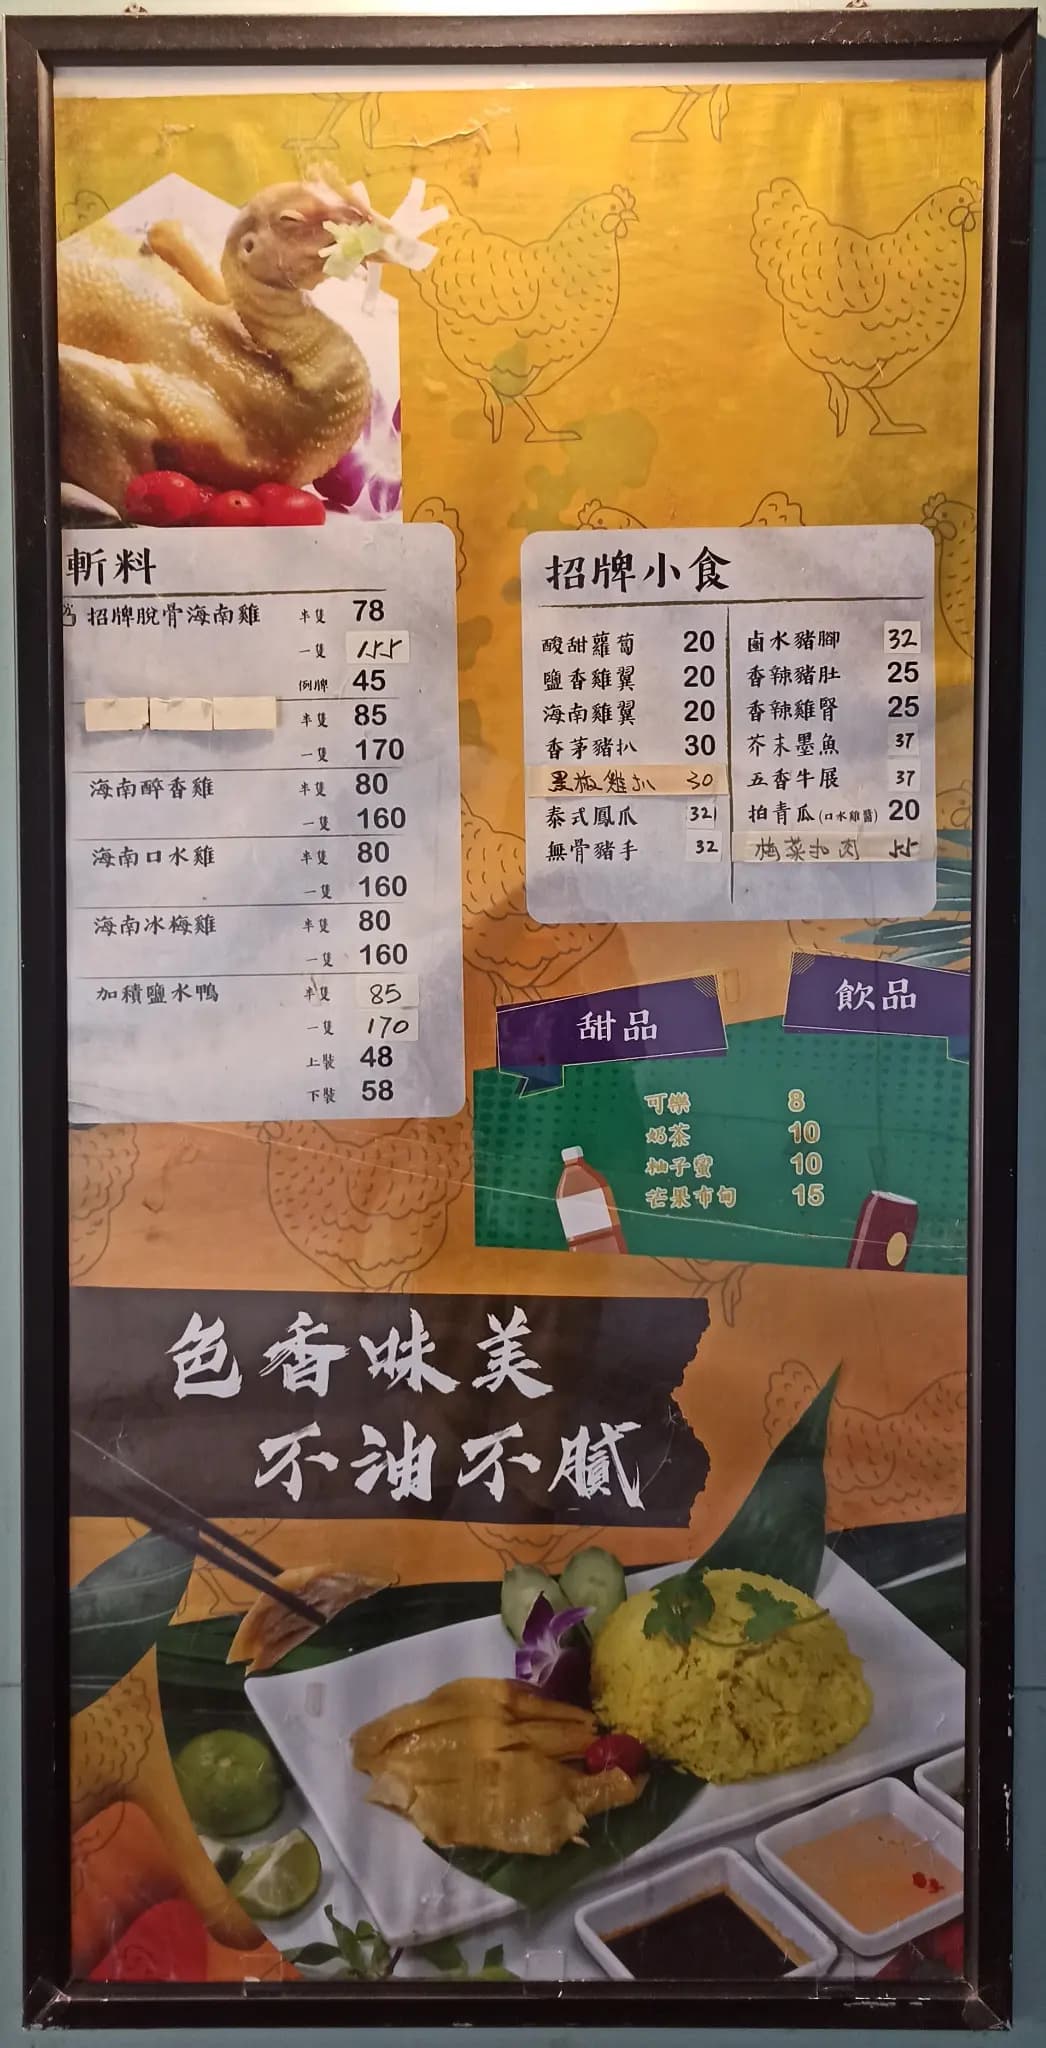 斬料
招牌脫骨海南雞 半隻 78
一隻 155
例牌 45
半隻 85
一隻 170
海南醉香雞 半隻 80
一隻 160
海南口水雞 半隻 80
一隻 160
海南冰梅雞 半隻 80
一隻 160
加積鹽水鴨 半隻 85
一隻 170
上裝 48
下裝 58
招牌小食
酸甜蘿蔔 20
鹽香雞翼 20
海南雞翼 20
香茅豬扒 30
黑椒雞扒 30
泰式鳳爪 32
無骨豬手 32
鹵水豬腳 32
香辣豬肚 25
香辣雞腎 25
芥末墨魚 37
五香牛展 37
拍青瓜(口水雞醬) 20
梅菜扣肉 55
甜品
飲品
可樂 8
奶茶 10
柚子蜜 10
芒果布甸 15
色香味美
不油不膩